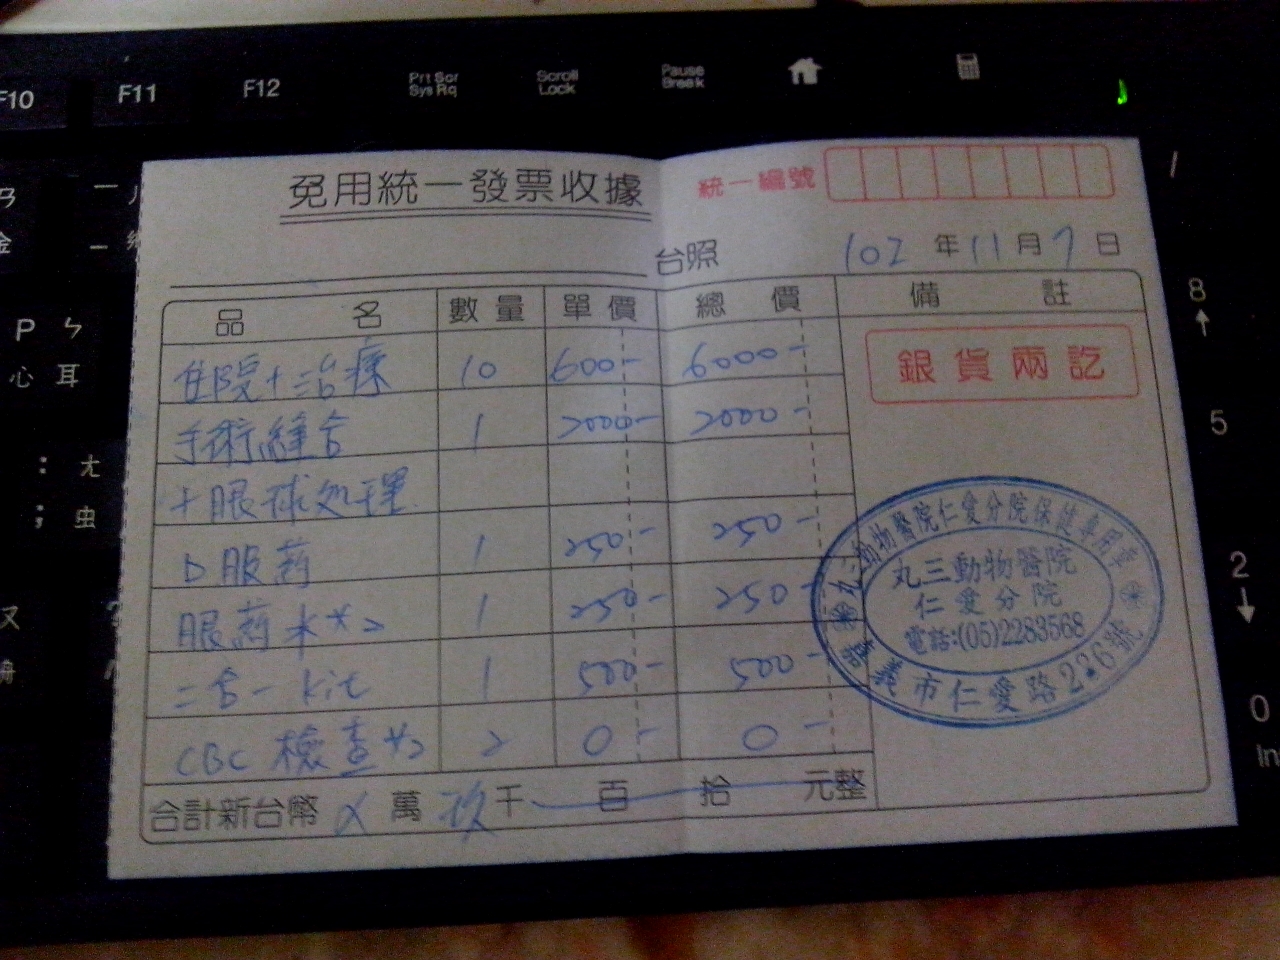 F10 F11 F12 Prt Scr Sys Rq Scroll Lock Pause Break
免用統一發票收據
統一編號
台照
102 年 11 月 7 日
品名 數量 單價 總價 備註
住院+治療 10 600- 6000-
銀貨兩訖
手術縫合 1 2000- 2000-
+眼球処理
口服葯 1 250- 250-
眼葯水*2 1 250- 250-
二合一 kit 1 500- 500-
CBC 檢查*2 2 0- 0-
合計新台幣 X 萬 玖 千 百 拾 元整
丸三動物醫院仁愛分院保健專用章
丸三動物醫院
仁愛分院
電話:(05)2283568
嘉義市仁愛路226號
P ㄣ
心 耳
: ㄤ
; 虫
8
5
2
0
In
/